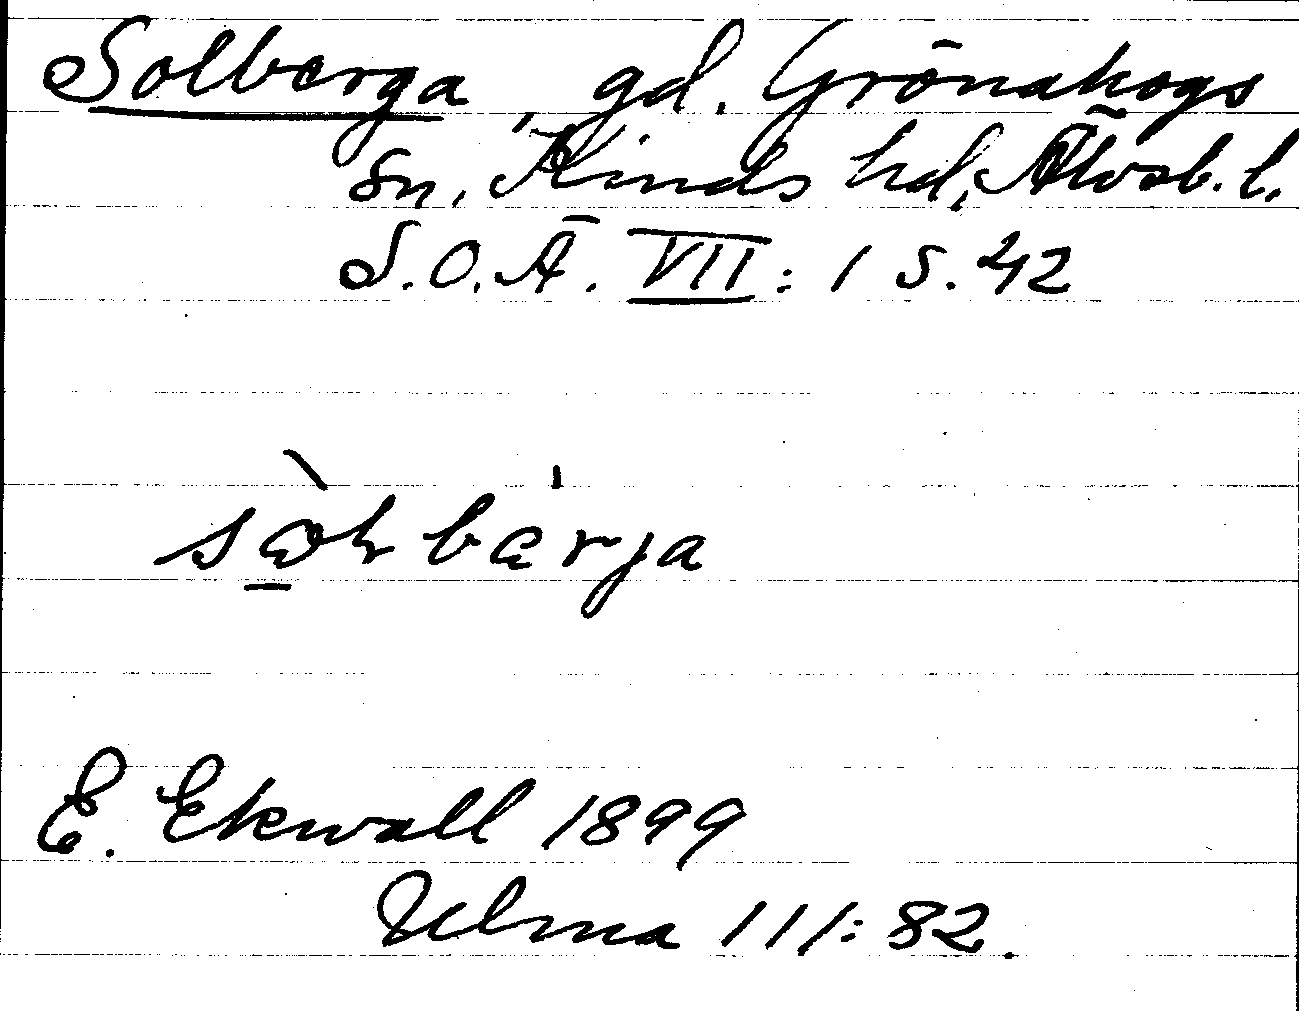 Solberga, gd. Grönahogs
sn, Kinds hd, Älvsb. l.
S.O.Ä. VII: 1 s. 42
E. Ekwall 1899
Ulma 111:82.